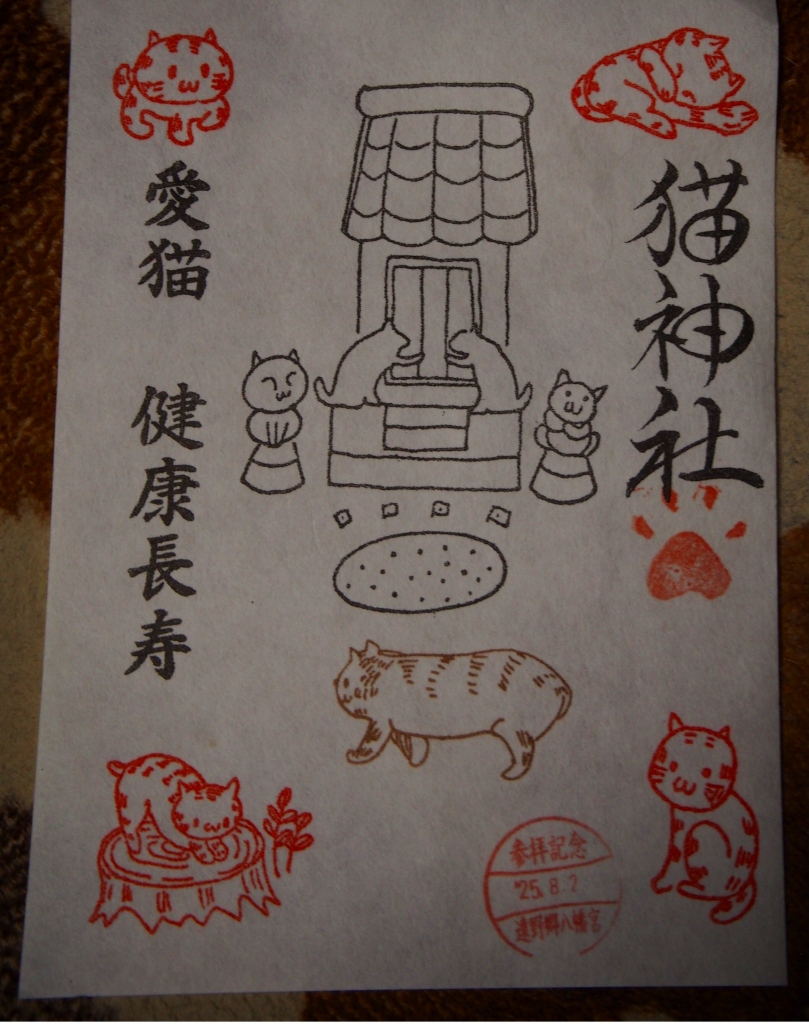 猫神社
愛猫 健康長寿
参拝記念
'25.8.2
遠野郷八幡宮